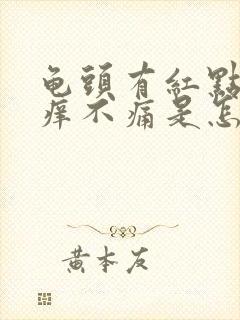 龟頭有紅點
痒不痛是怎
黄本友